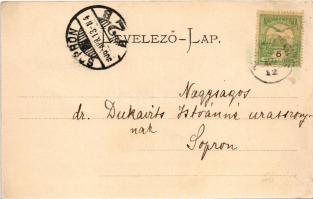 VELEZŐ-LAP.
SOPRON
Nagyságos
dr. Dukavits Istvánné urasszony-
nak
Sopron